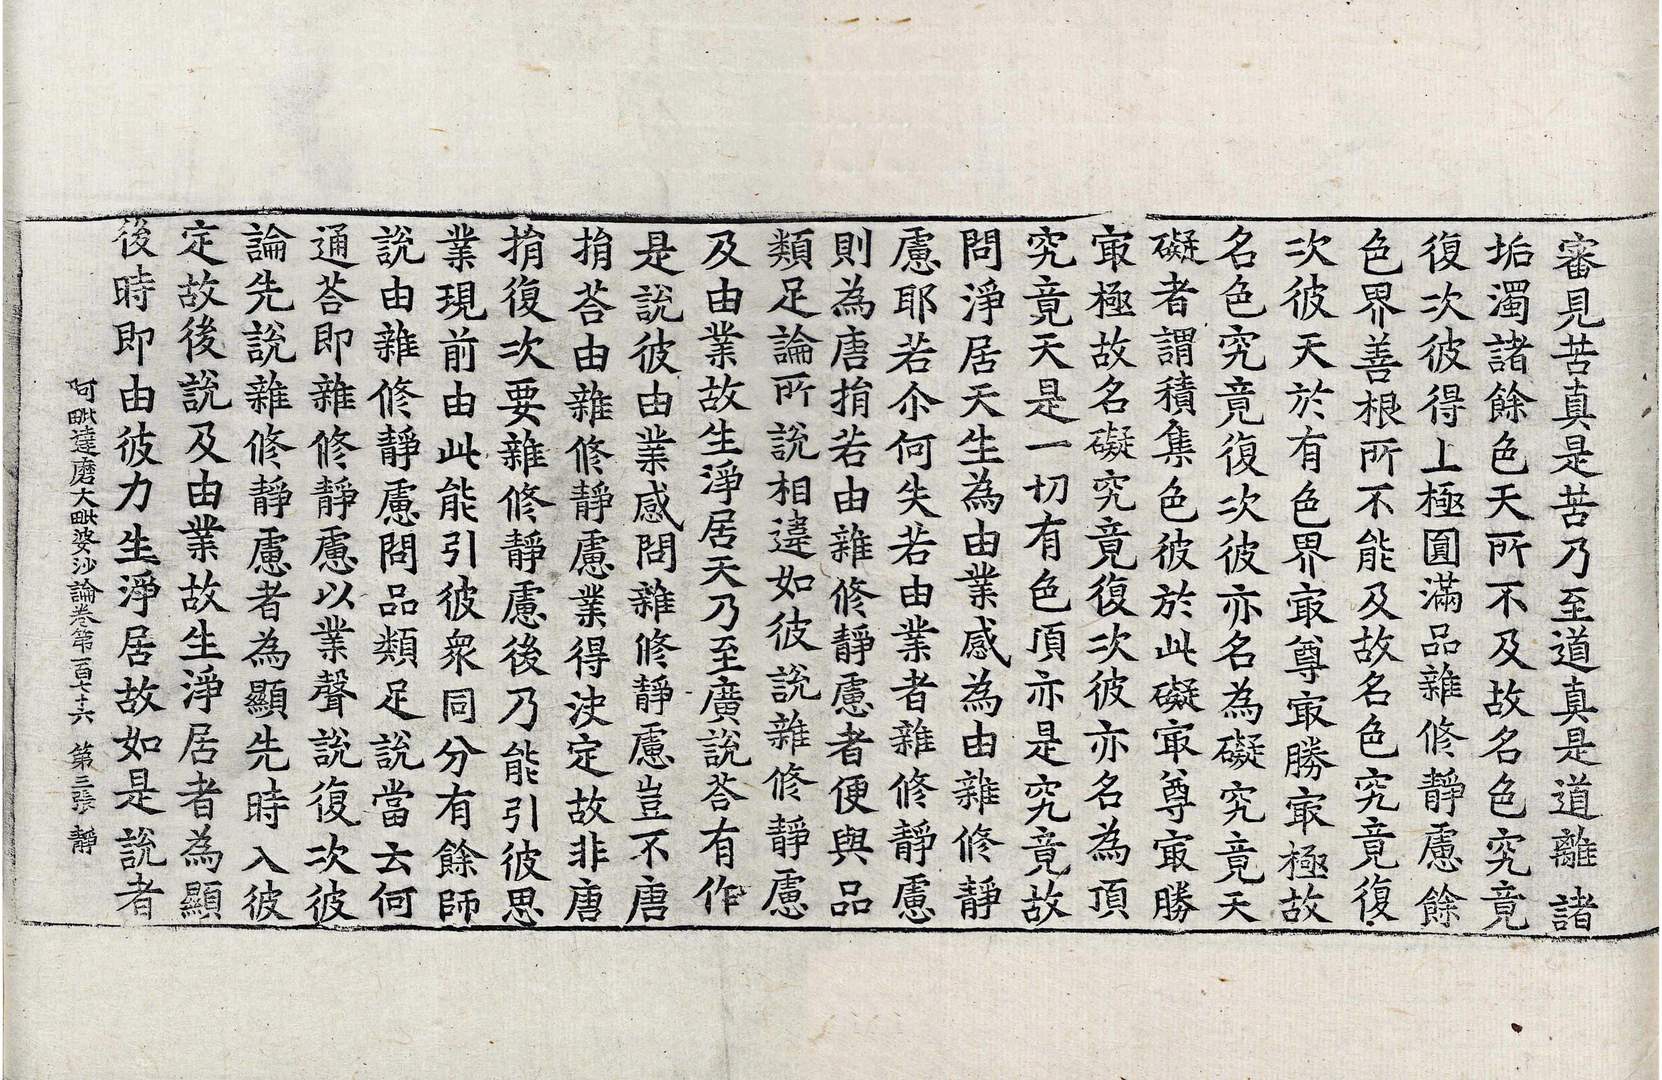 審見苦真是苦乃至道真是道離諸
垢濁諸餘色天所不及故名色究竟
復次彼得上極圓滿品雜修靜慮餘
色界善根所不能及故名色究竟復
次彼天於有色界㝡尊㝡勝㝡極故
名色究竟復次彼亦名為礙究竟天
礙者謂積集色彼於此礙㝡尊㝡勝
㝡極故名礙究竟復次彼亦名為頂
究竟天是一切有色頂亦是究竟故
問淨居天生為由業感為由雜修靜
慮耶若尒何失若由業者雜修靜慮
則為唐捐若由雜修靜慮者便與品
類足論所說相違如彼說雜修靜慮
及由業故生淨居天乃至廣說荅有作
是說彼由業感問雜修靜慮豈不唐
捐荅由雜修靜慮業得決定故非唐
捐復次要雜修靜慮後乃能引彼思
業現前由此能引彼衆同分有餘師
說由雜修靜慮問品類足說當云何
通荅即雜修靜慮以業聲說復次彼
論先說雜修靜慮者為顯先時入彼
定故後說及由業故生淨居者為顯
後時即由彼力生淨居故如是說者
阿毗達磨大毗婆沙論卷第一百七十六 第三張 靜